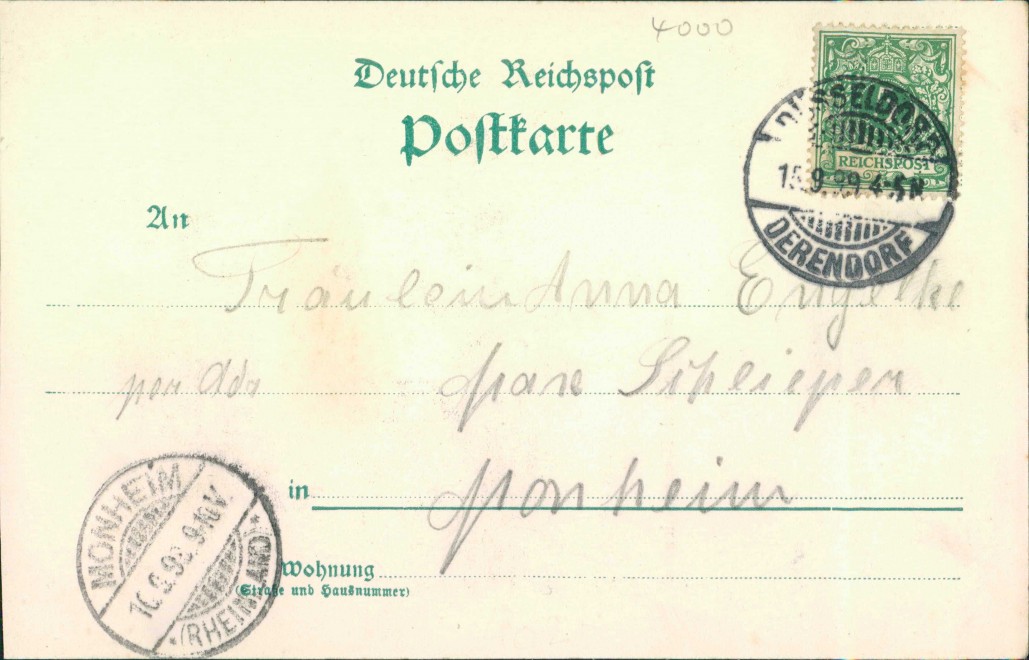 4000
Deutsche Reichspost
Postkarte
REICHSPOST
DÜSSELDORF
15.9.99.4-5N
DERENDORF
An
Fräulein Anna Engelke
per Adr Max Schlieper
in Monheim
MONHEIM
16.9.99.9-10V.
* (RHEINLAND) *
Wohnung
(Straße und Hausnummer)